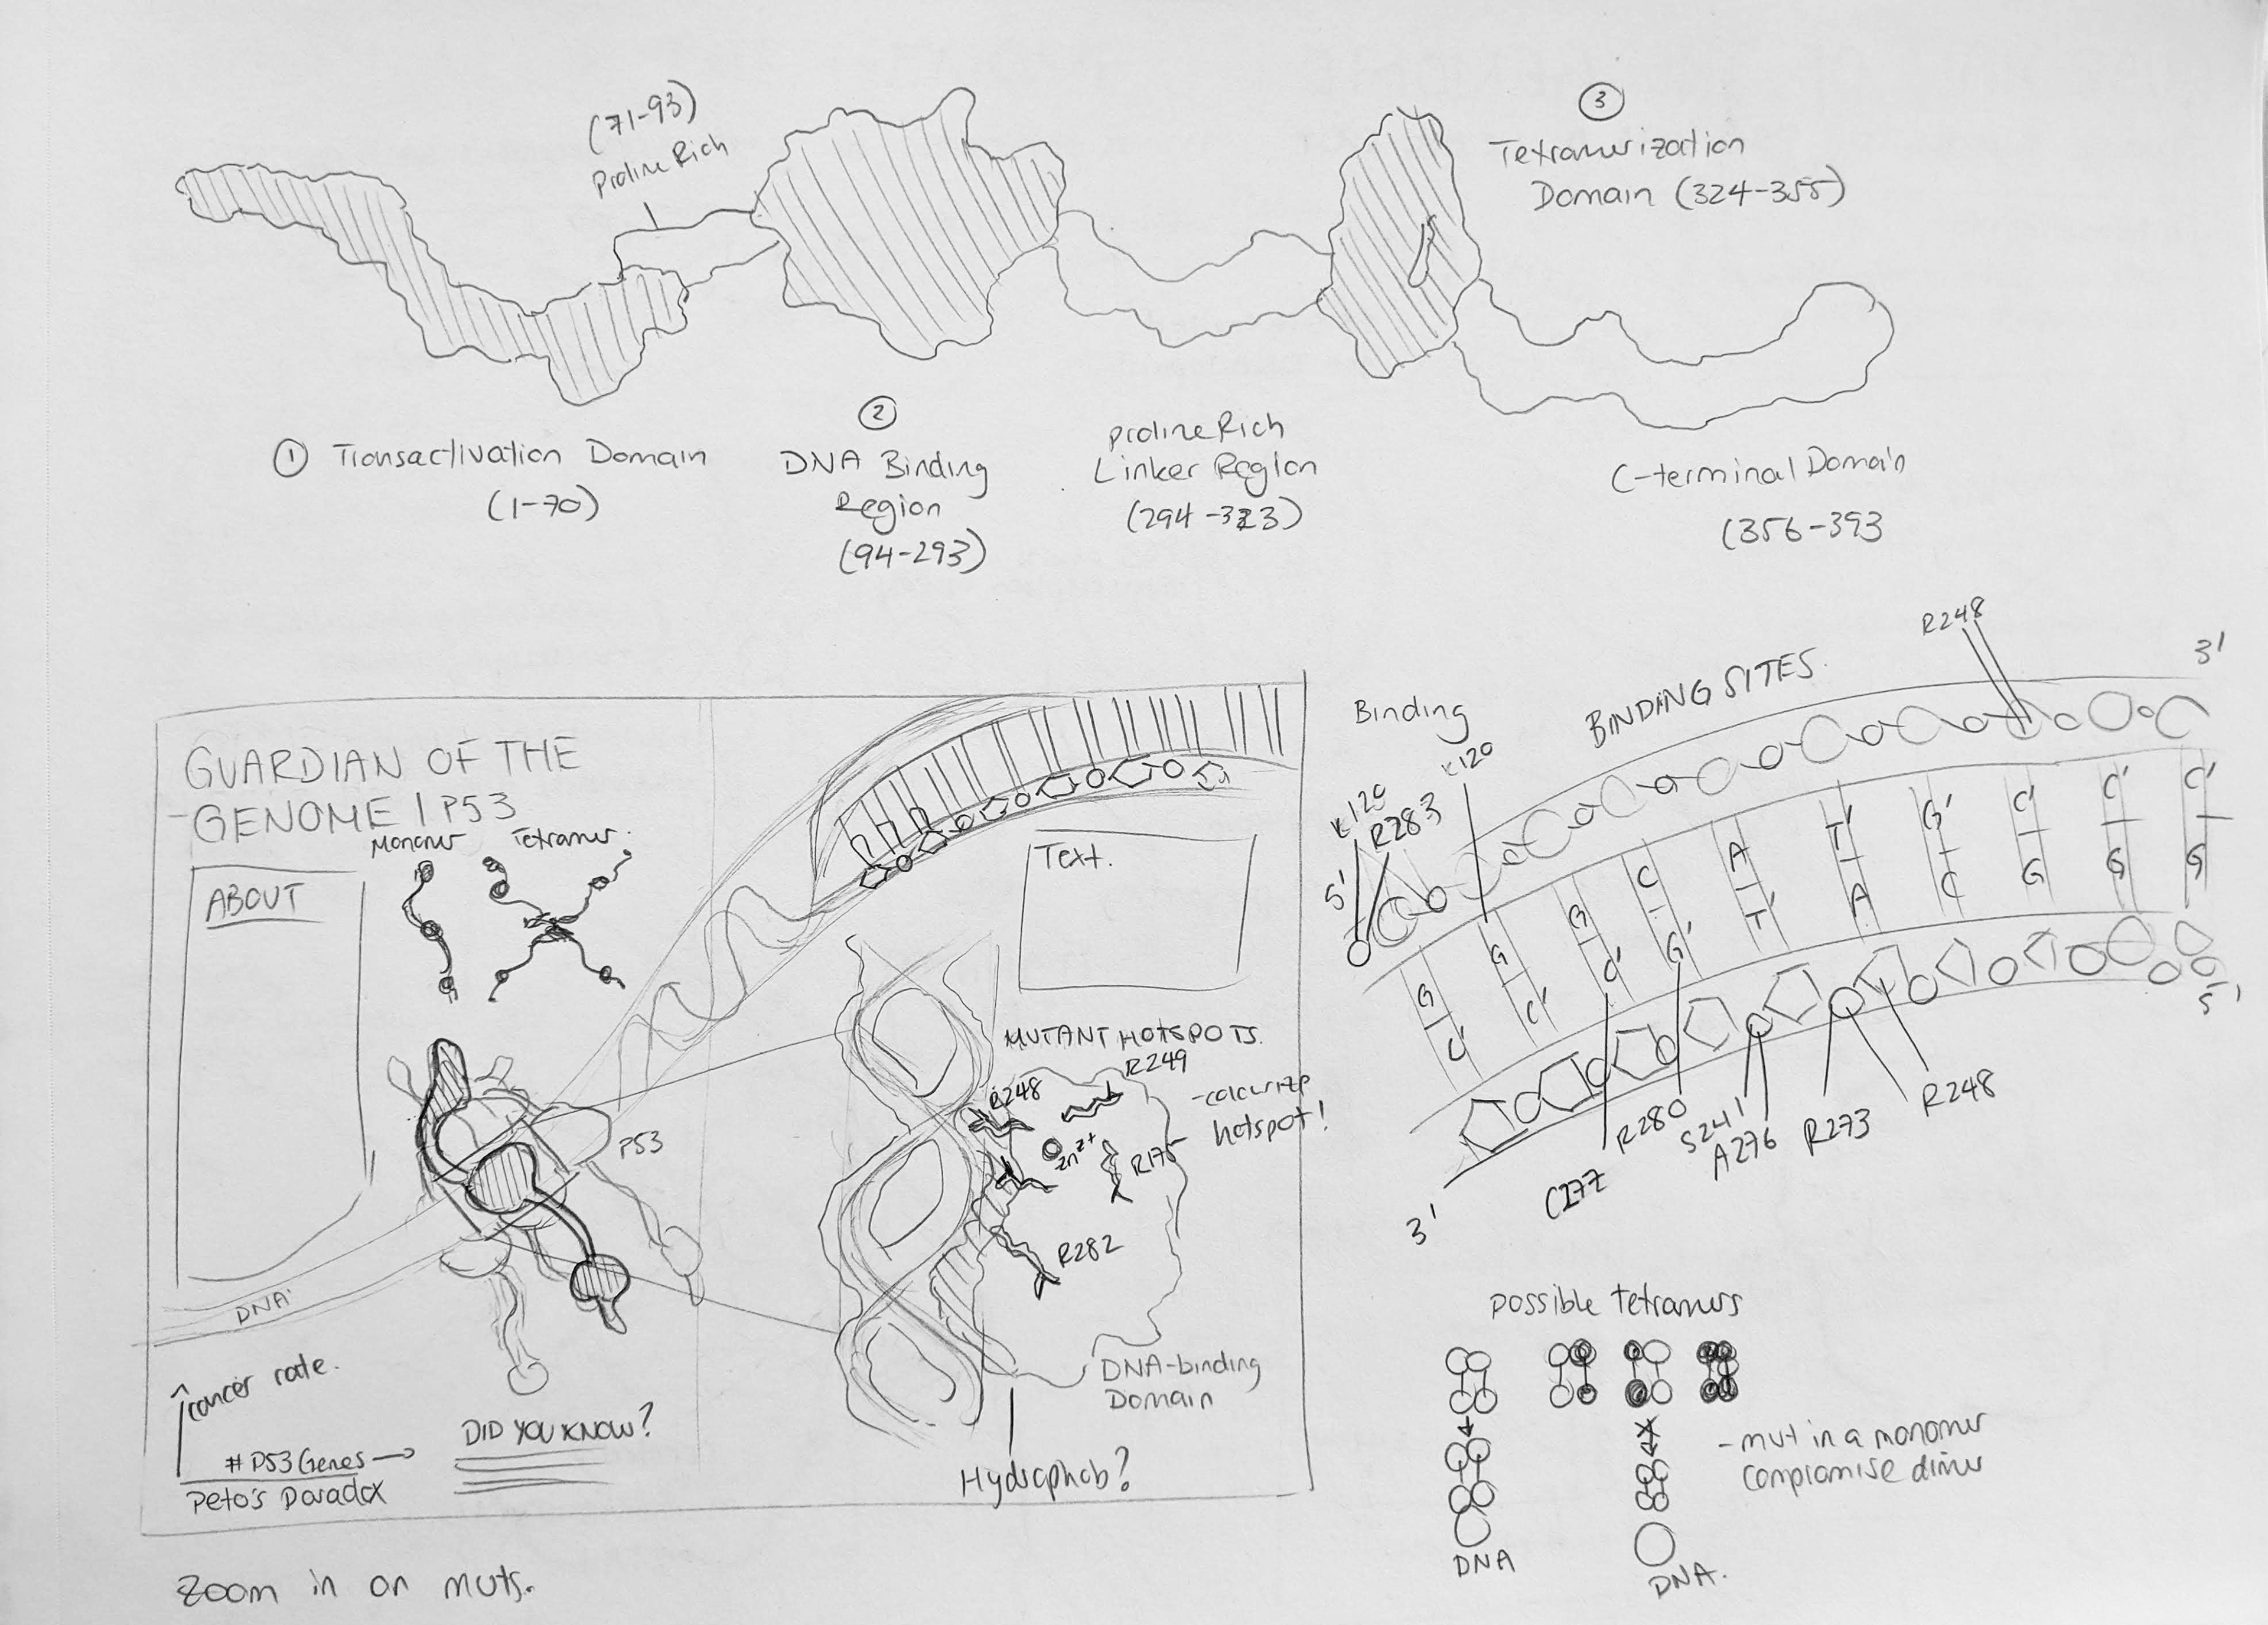 (71-93)
Proline Rich
3
Tetramerization
Domain (324-355)
1 Transactivation Domain
(1-70)
2
DNA Binding
Region
(94-293)
proline Rich
Linker Region
(294-323)
C-terminal Domain
(356-393
GUARDIAN OF THE
GENOME | P53
Monomer
Tetramer
ABOUT
Text.
P53
DNA
MUTANT HOTSPOTS.
R249
R248
Zn2+
R175
R282
-colourize
hotspot!
DNA-binding
Domain
Hydrophob?
↑cancer rate.
# P53 Genes →
Peto's Paradox
DID YOU KNOW?
Zoom in on muts.
Binding
BINDING SITES.
R248
3'
K120
K120
R283
5'
G G G C A T' G' C' C' C'
C' C' C' G' T' A C G G G
5'
3'
C277
R280
S241
A276
R273
R248
possible tetramers
DNA
DNA.
-mut in a monomer
compromise dimer